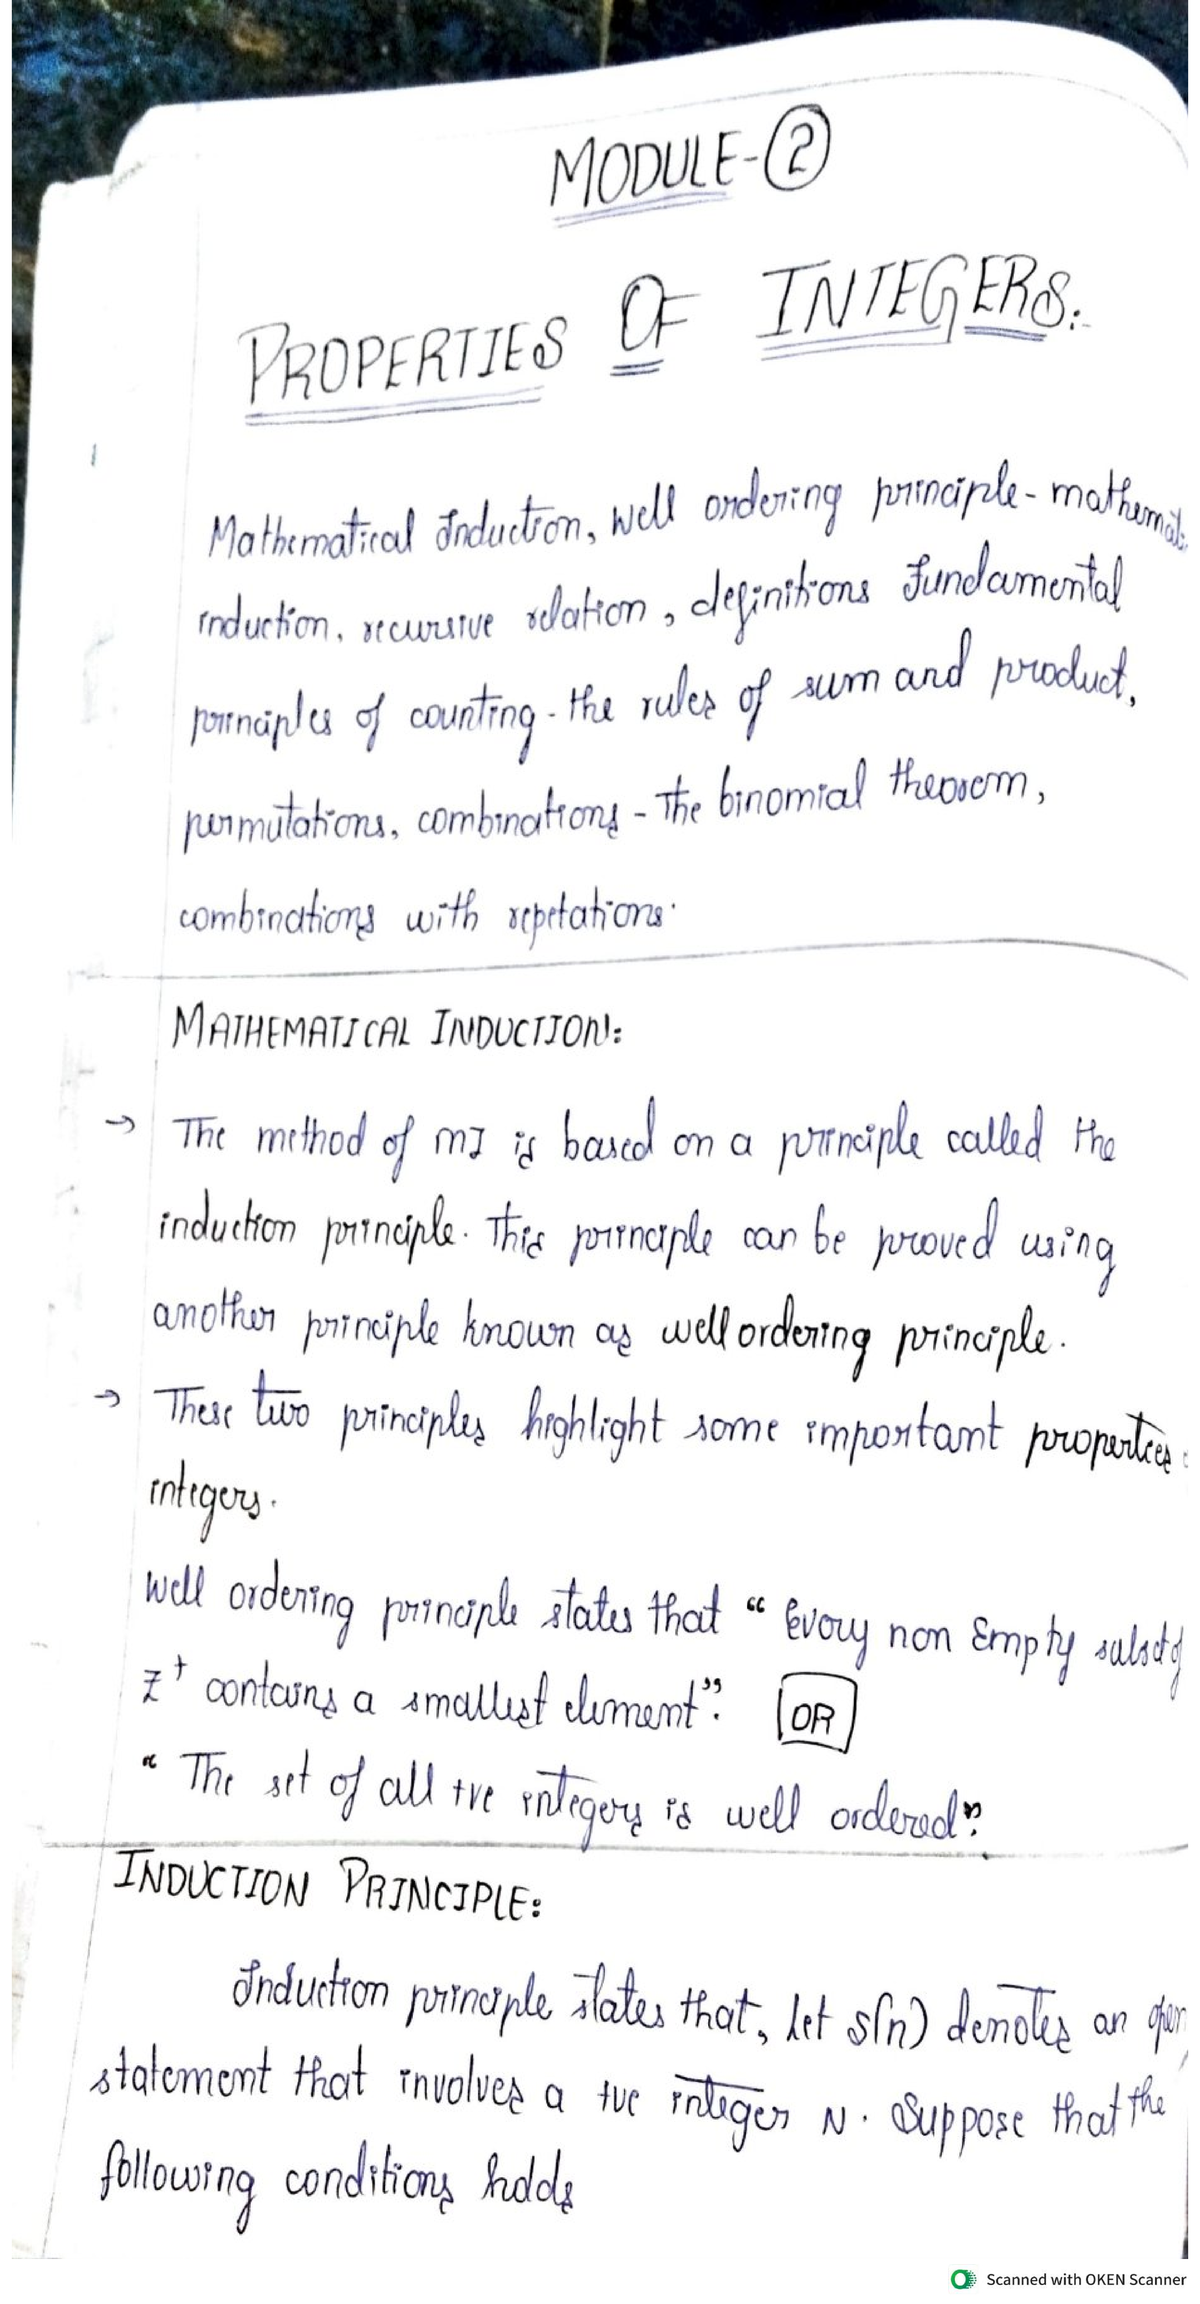 MODULE-②
PROPERTIES OF INTEGERS:
Mathematical Induction, well ordering principle - mathemati
induction, recursive relation, definitions Fundamental
principles of counting - the rules of sum and product,
permutations, combinations - The binomial theorem,
combinations with repetations.
MATHEMATICAL INDUCTION:
→ The method of MI is based on a principle called the
induction principle. This principle can be proved using
another principle known as well ordering principle.
→ These two principles highlight some important properties
integers.
Well ordering principle states that “Every non Empty subset of
Z⁺ contains a smallest element”. OR
“The set of all +ve integers is well ordered”.
INDUCTION PRINCIPLE:
Induction principle states that, let S(n) denotes an open
statement that involves a +ve integer N. Suppose that the
following conditions holds
Scanned with OKEN Scanner